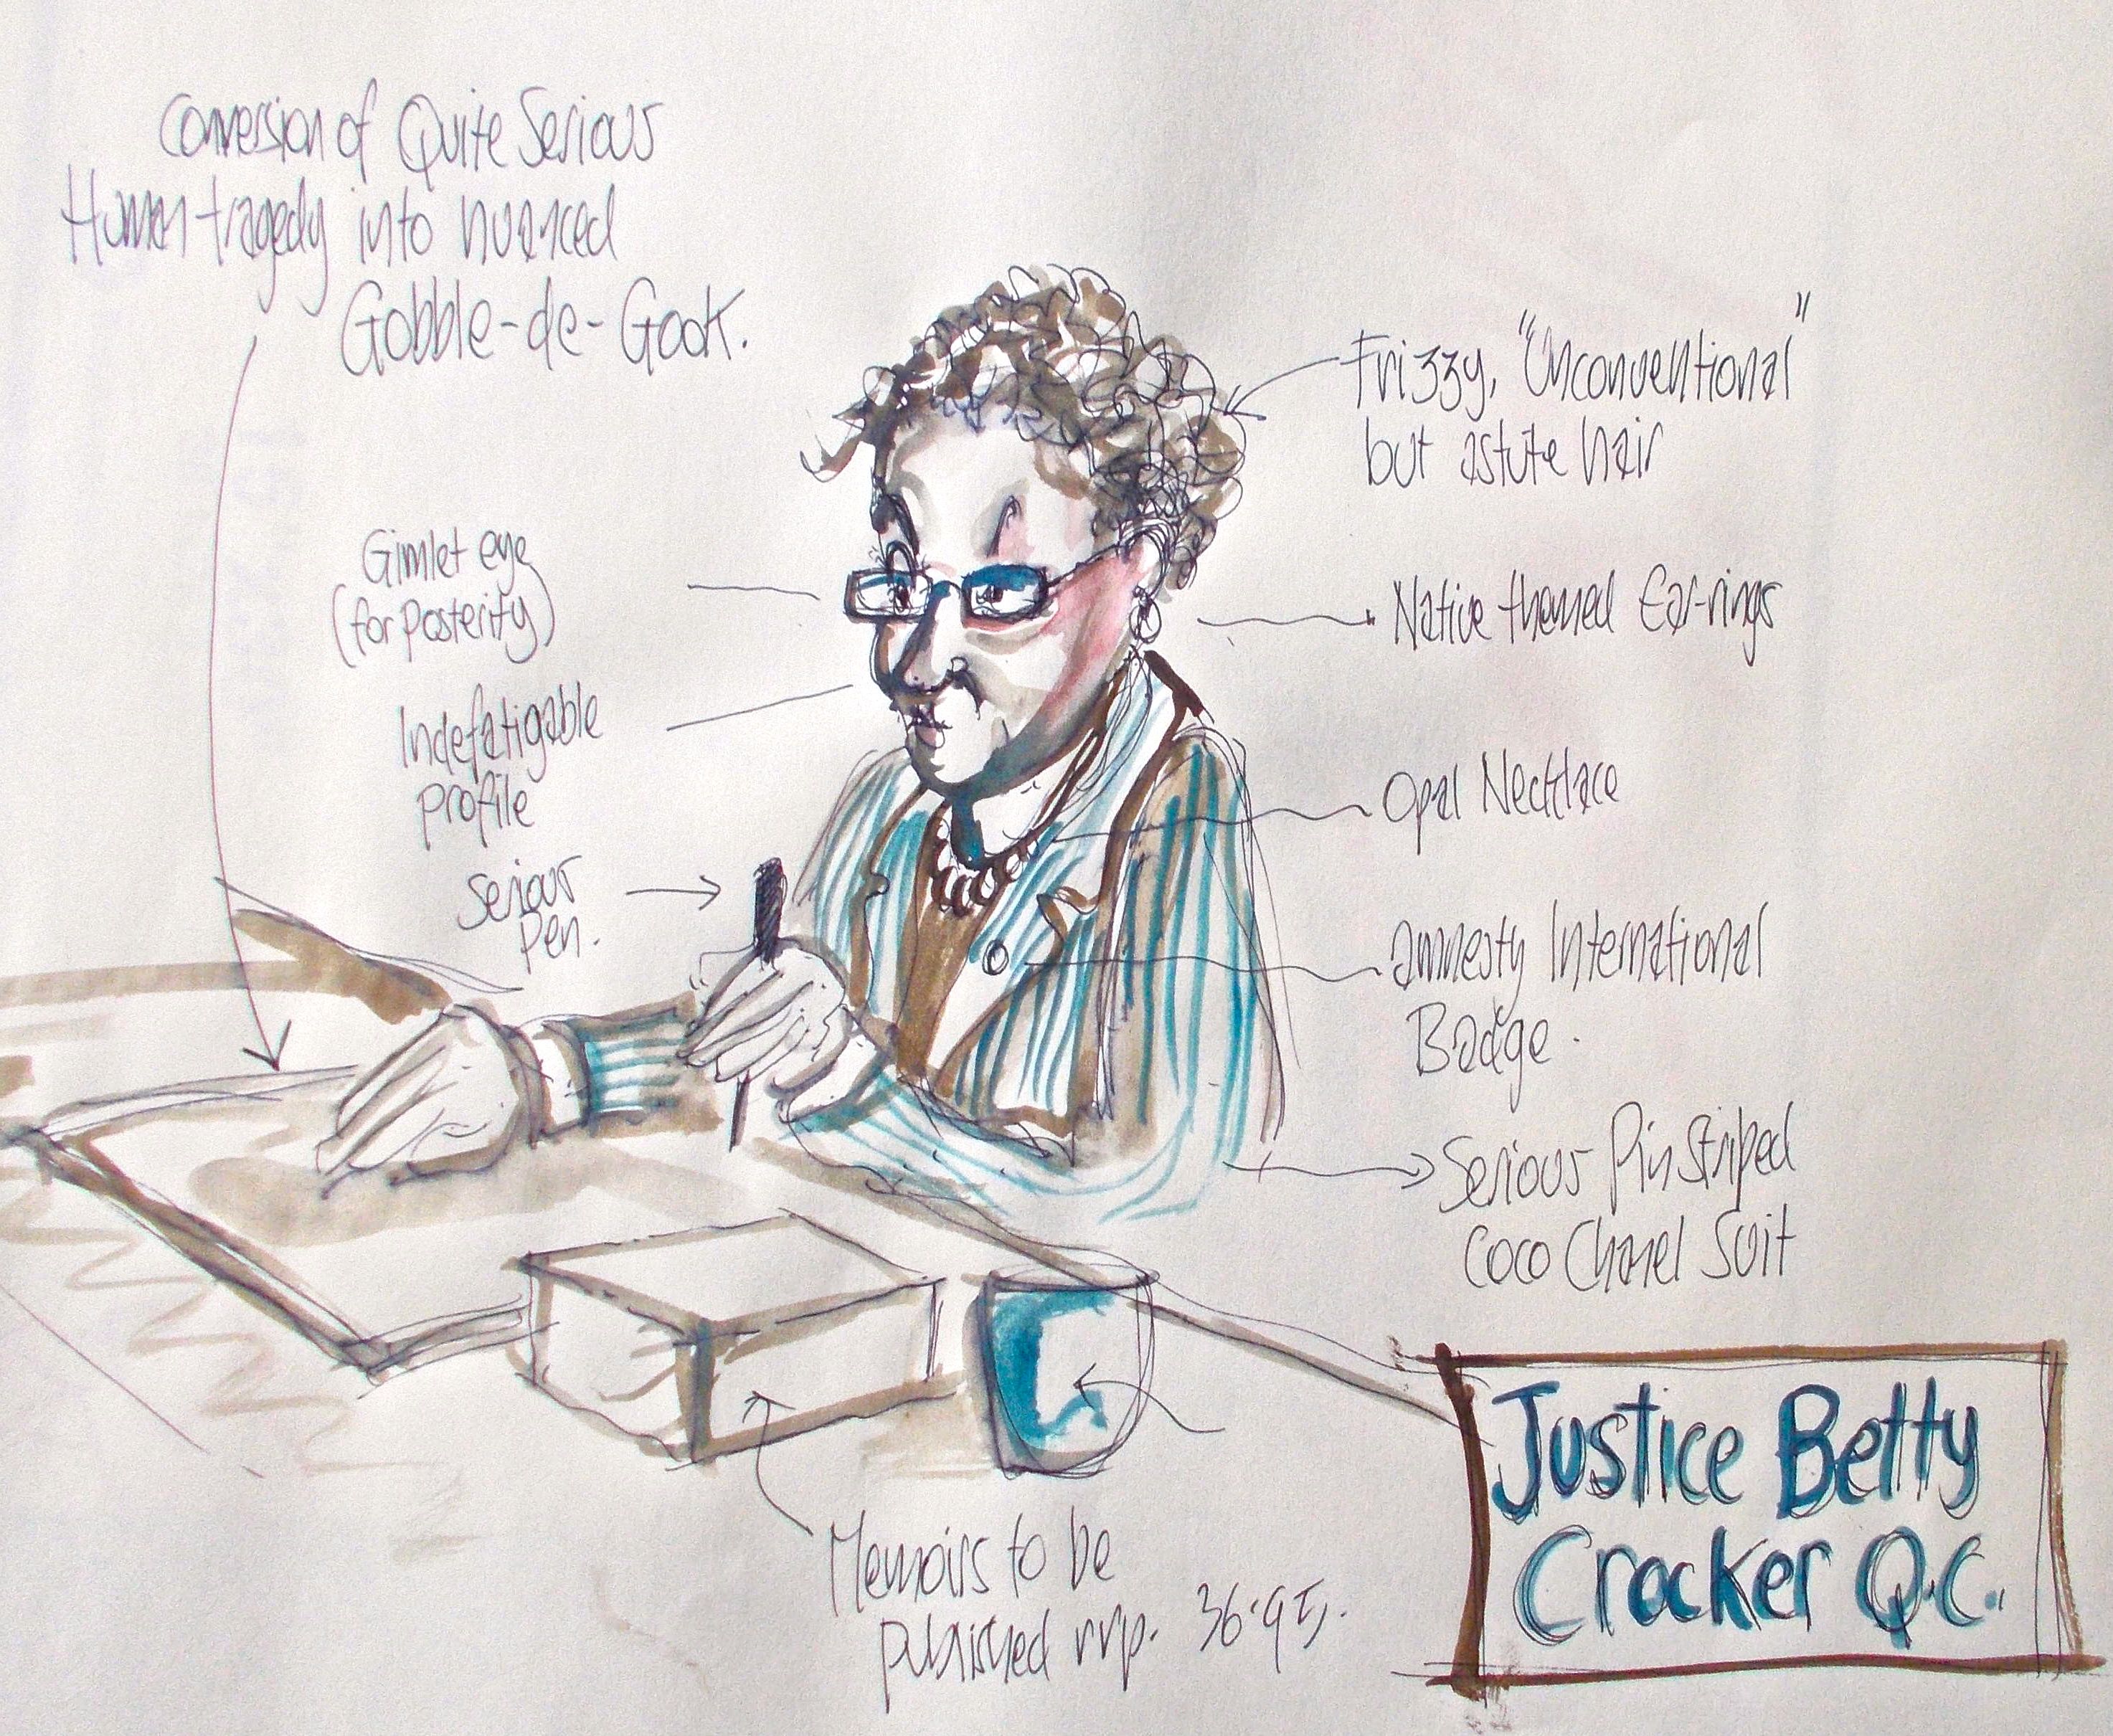 Conversion of Quite Serious
Human tragedy into nuanced
Gobble-de-Gook.
Gimlet eye
(for posterity)
Indefatigable
profile
Serious
Pen.
Frizzy, "Unconventional"
but astute hair
Native themed Ear-rings
Opal Necklace
Amnesty International
Badge.
Serious Pin Striped
Coco Chanel Suit
Memoirs to be
published rrp. 36.95.
Justice Betty
Crocker Q.C.